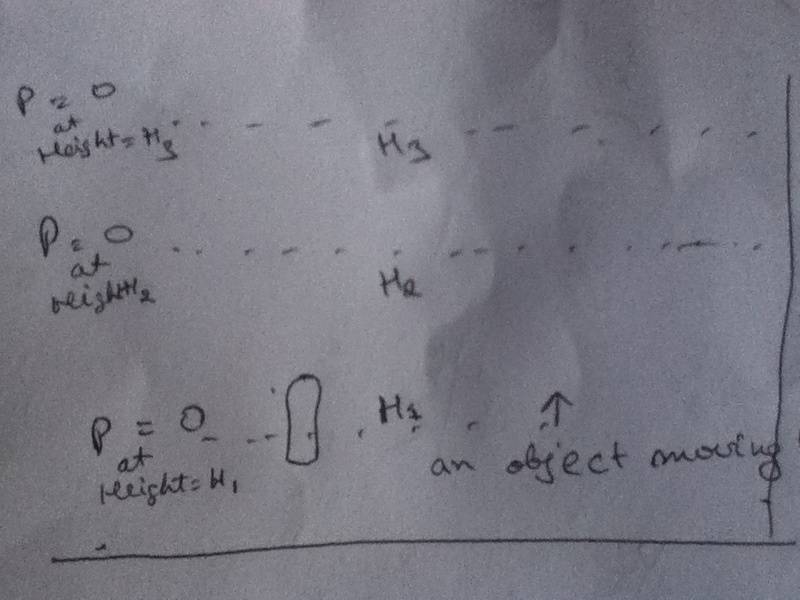 P = 0
at
Height = H3
H3
P = 0
at
Height H2
H2
P = 0
at
Height = H1
H1
↑
an object moving